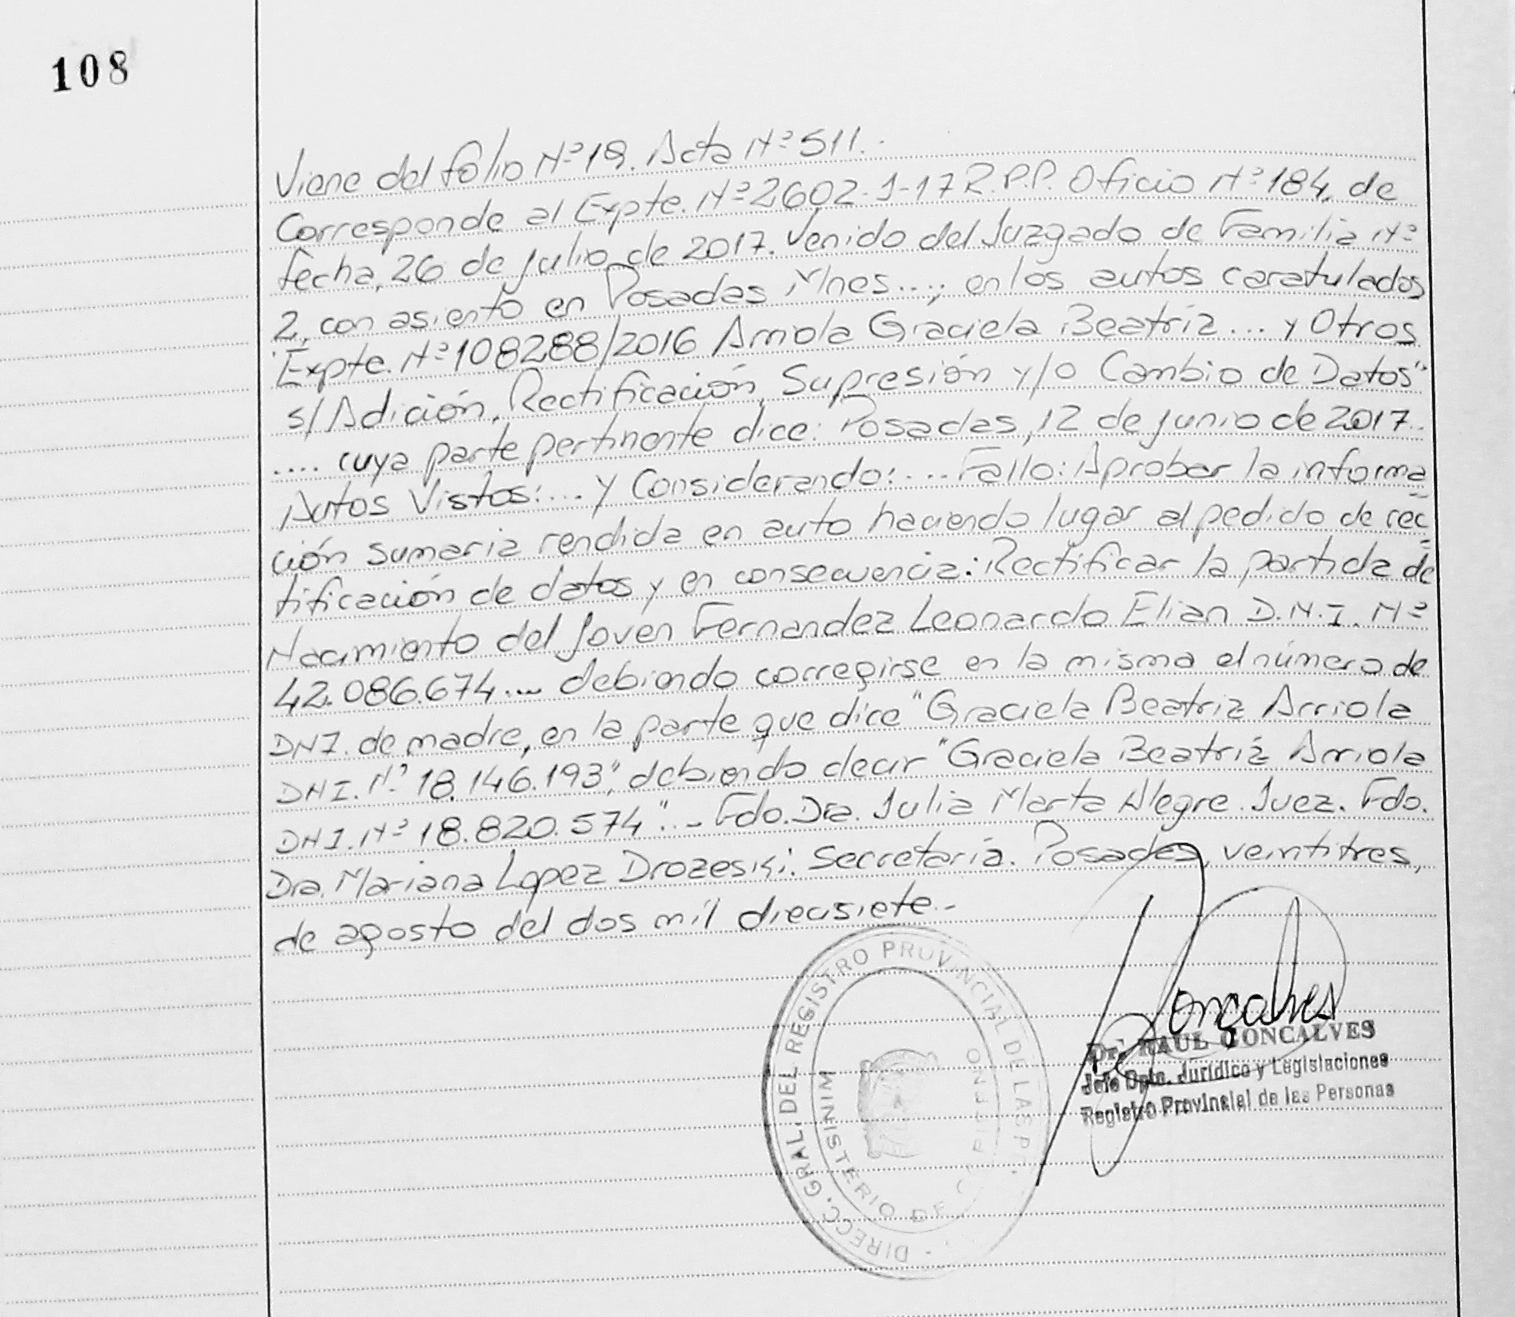 108
Viene del folio Nº 19. Acta Nº 511.-
Corresponde al Expte. Nº 2602-J-17 R.P.P. Oficio Nº 184, de
fecha, 26 de julio de 2017. Venido del Juzgado de Familia Nº
2, con asiento en Posadas Mnes...; en los autos caratulados
"Expte. Nº 108288/2016 Arriola Graciela Beatríz.... y Otros
s/Adición, Rectificación, Supresión y/o Cambio de Datos"
.... cuya parte pertinente dice: Posadas, 12 de junio de 2017..
Autos Vistos:... y Considerando:... Fallo: Aprobar la informa
ción sumaria rendida en auto haciendo lugar al pedido de rec
tificación de datos y en consecuencia: Rectificar la partida de
Nacimiento del joven Fernandez Leonardo Elian D.N.I. Nº
42.086.674.... debiendo corregirse en la misma el número de
DNI. de madre, en la parte que dice "Graciela Beatriz Arriola
DNI. Nº 18.146.193", debiendo decir "Graciela Beatríz Arriola
DNI. Nº 18.820.574".- Fdo. Dra. Julia Marta Alegre. Juez. Fdo.
Dra. Mariana Lopez Drozeski. Secretaría. Posadas, veintitres,
de agosto del dos mil diecisiete.-
DIRECC. GRAL. DEL REGISTRO PROVINCIAL DE LAS
MINISTERIO DE GOBIERNO
Goncalves
Dr. RAUL GONCALVES
Jefe Dpto. Jurídico y Legislaciones
Registro Provincial de las Personas